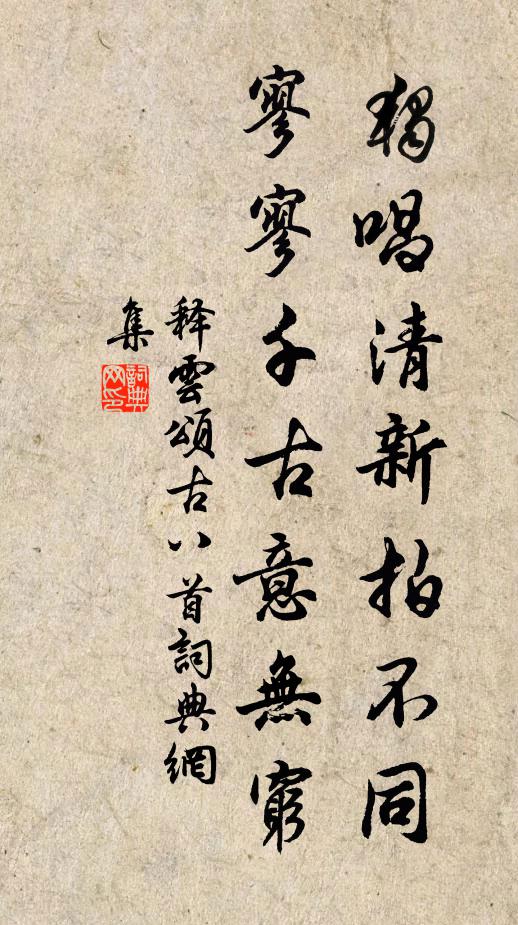 獨唱清新拍不同
寥寥千古意無窮
释雲頌古八首詞典網
集
詞典
网印